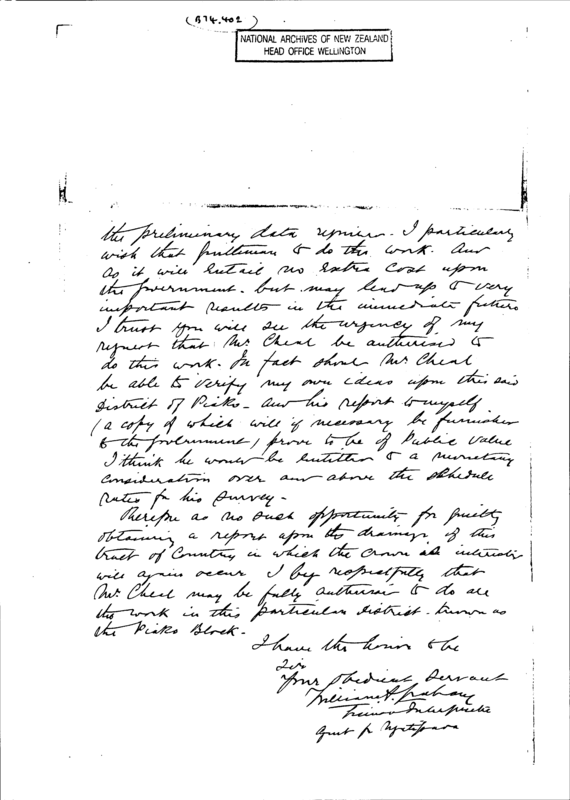 (B74.402)
NATIONAL ARCHIVES OF NEW ZEALAND
HEAD OFFICE WELLINGTON
the preliminary data required. I particularly
wish that gentleman to do this work. And
as it will entail no extra cost upon
the Government. but may lead up to very
important results in the immediate future
I trust you will see the urgency of my
request that Mr Cheal be authorised to
do this work. In fact should Mr Cheal
be able to verify my own ideas upon this said
District of Piako. And his report to myself
(a copy of which will if necessary be furnished
to the Government) prove to be of Public value
I think he would be entitled to a monetary
consideration over and above the schedule
rates for his survey.
Therefore as no such opportunity for
obtaining a report upon the drainage of this
tract of Country in which the Crown interested
will again occur I beg respectfully that
Mr. Cheal may be fully authorised to do all
the work in this particular District. known as
the Piako Block.
I have the honor to be
Sir
Your obedient servant
William A. Graham
Licensed Interpreter
Agent for